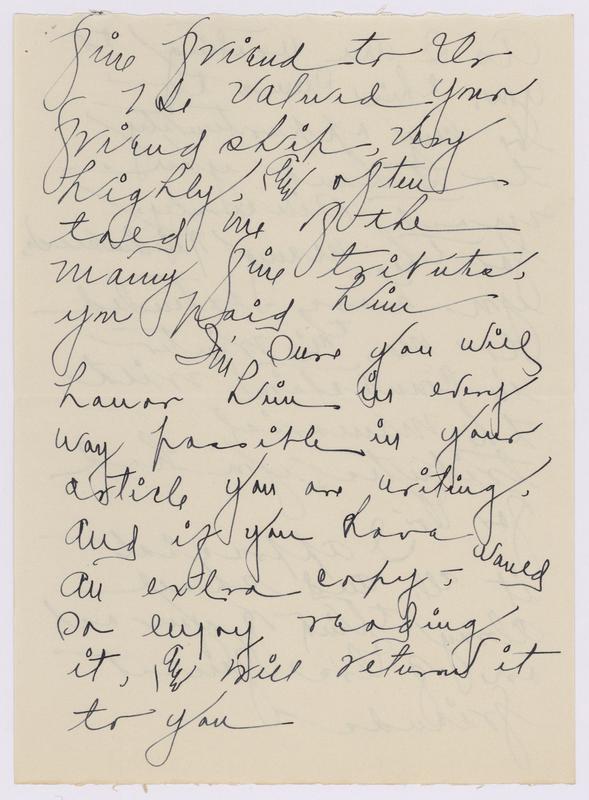 fine friend to Us
He valued your
friendship, very
highly, & often
told me of the
many fine tributes,
you paid him
I'm sure you will
honor him in every
way possible in your
article you are writing.
And if you have
an extra copy - would
so enjoy reading
it, & will return it
to you